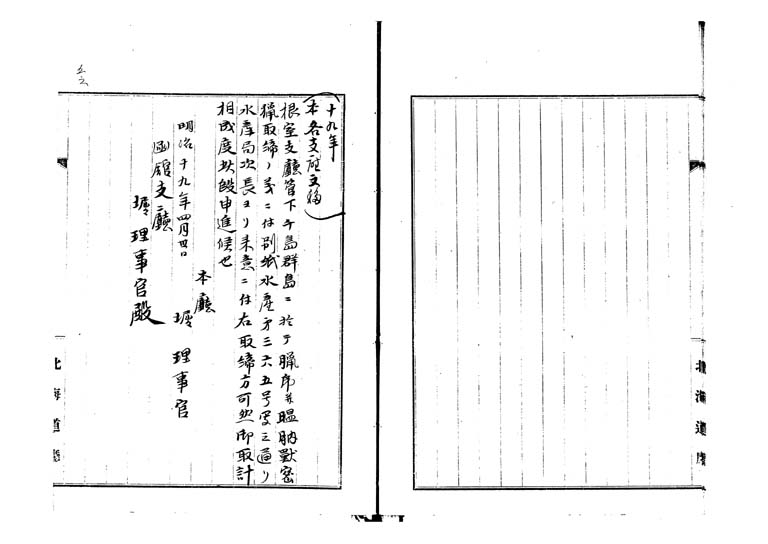 十九年
本各支庁文移
根室支廳管下千島群島ニ於テ臘虎并膃肭獸密
獵取締ノ義ニ付別紙水産第三六五号写之通リ
水産局次長ヨリ来意ニ付右取締方可然御取計
相成度此段申進候也
明治十九年四月四日
本廳
堀理事官
函館支廳
堀理事官殿
北海道廳
北海道廳